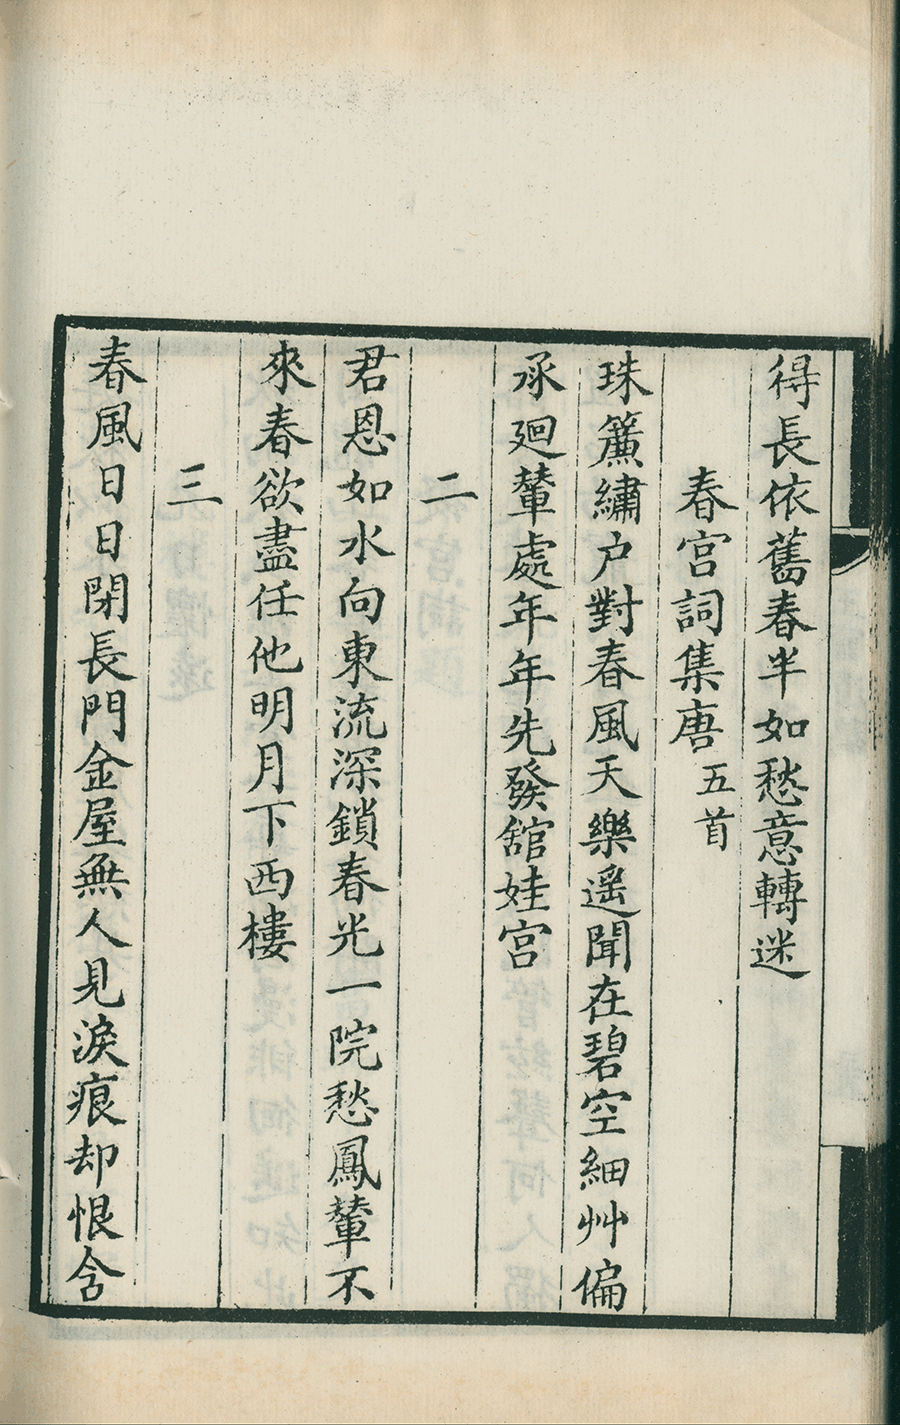 得長依舊春半如愁意轉迷
春宮詞集唐五首
珠簾繡户對春風天樂遥聞在碧空細艸偏
承廻輦處年年先發舘娃宮
二
君恩如水向東流深鎖春光一院愁鳳輦不
來春欲盡任他明月下西樓
三
春風日日閉長門金屋無人見淚痕却恨含